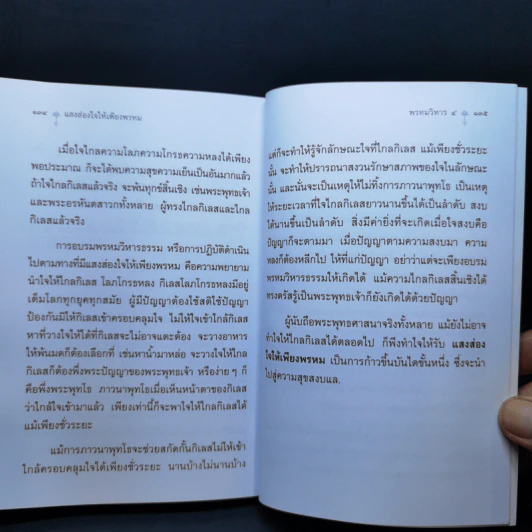 ๑๓๔ แสงส่องใจให้เพียงพรหม
เมื่อใจไกลความโลภความโกรธความหลงได้เพียง
พอประมาณ ก็จะได้พบความสุขความเย็นเป็นอันมากแล้ว
ถ้าใจไกลกิเลสแล้วจริง จะพ้นทุกข์สิ้นเชิง เช่นพระพุทธเจ้า
และพระอรหันตสาวกทั้งหลาย ผู้ทรงไกลกิเลสและไกล
กิเลสแล้วจริง
การอบรมพรหมวิหารธรรม หรือการปฏิบัติดำเนิน
ไปตามทางที่มีแสงส่องใจให้เพียงพรหม คือความพยายาม
นำใจให้ไกลกิเลส โลภโกรธหลง กิเลสโลภโกรธหลงมีอยู่
เต็มโลกทุกยุคทุกสมัย ผู้มีปัญญาต้องใช้สติใช้ปัญญา
ป้องกันมิให้กิเลสเข้าครอบคลุมใจ ไม่ให้ใจเข้าใกล้กิเลส
หาที่วางใจให้ได้ที่กิเลสจะไม่อาจแตะต้อง จะวางอาหาร
ให้พ้นมดก็ต้องเลือกที่ เช่นหาน้ำมาหล่อ จะวางใจให้ไกล
กิเลสก็ต้องพึ่งพระปัญญาของพระพุทธเจ้า หรือง่าย ๆ ก็
คือพึ่งพระพุทโธ ภาวนาพุทโธเมื่อเห็นหน้าตาของกิเลส
ว่าใกล้ใจเข้ามาแล้ว เพียงเท่านี้ก็จะพาใจให้ไกลกิเลสได้
แม้เพียงชั่วระยะ
แม้การภาวนาพุทโธจะช่วยสกัดกั้นกิเลสไม่ให้เข้า
ใกล้ครอบคลุมใจได้เพียงชั่วระยะ นานบ้างไม่นานบ้าง
พรหมวิหาร ๔ ๑๓๕
แต่ก็จะทำให้รู้จักลักษณะใจที่ไกลกิเลส แม้เพียงชั่วระยะ
นั้น จะทำให้ปรารถนาสงวนรักษาสภาพของใจในลักษณะ
นั้น และนั่นจะเป็นเหตุให้ไม่ทิ้งการภาวนาพุทโธ เป็นเหตุ
ให้ระยะเวลาที่ใจไกลกิเลสยาวนานขึ้นได้เป็นลำดับ สงบ
ได้นานขึ้นเป็นลำดับ สิ่งมีค่ายิ่งที่จะเกิดเมื่อใจสงบคือ
ปัญญาก็จะตามมา เมื่อปัญญาตามความสงบมา ความ
หลงก็ต้องหลีกไป ให้ที่แก่ปัญญา อย่าว่าแต่จะเพียงอบรม
พรหมวิหารธรรมให้เกิดได้ แม้ความไกลกิเลสสิ้นเชิงได้
ทรงตรัสรู้เป็นพระพุทธเจ้าก็ยังเกิดได้ด้วยปัญญา
ผู้นับถือพระพุทธศาสนาจริงทั้งหลาย แม้ยังไม่อาจ
ทำใจให้ไกลกิเลสได้ตลอดไป ก็พึงทำใจให้รับ แสงส่อง
ใจให้เพียงพรหม เป็นการก้าวขึ้นบันไดขั้นหนึ่ง ซึ่งจะนำ
ไปสู่ความสุขสงบแล.